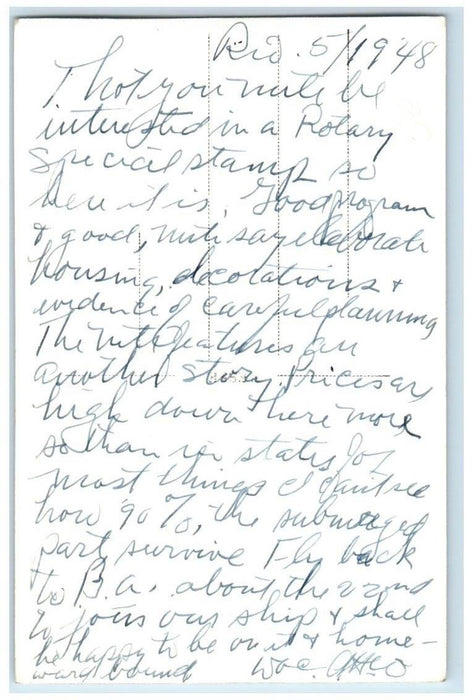 Rio. 5/1948
Thot you mite be
interested in a Rotary
Special stamp so
here it is. Good program
& good, mite say elaborate
housing, decorations &
evidence of careful planning
The nite features are
another story. Prices are
high down here more
so than in states for
most things I can't see
how 90%, the submerged
part survive Fly back
to B.A. about the 22nd
to join our ship & shall
be happy to be on it & home-
ward bound Doc.